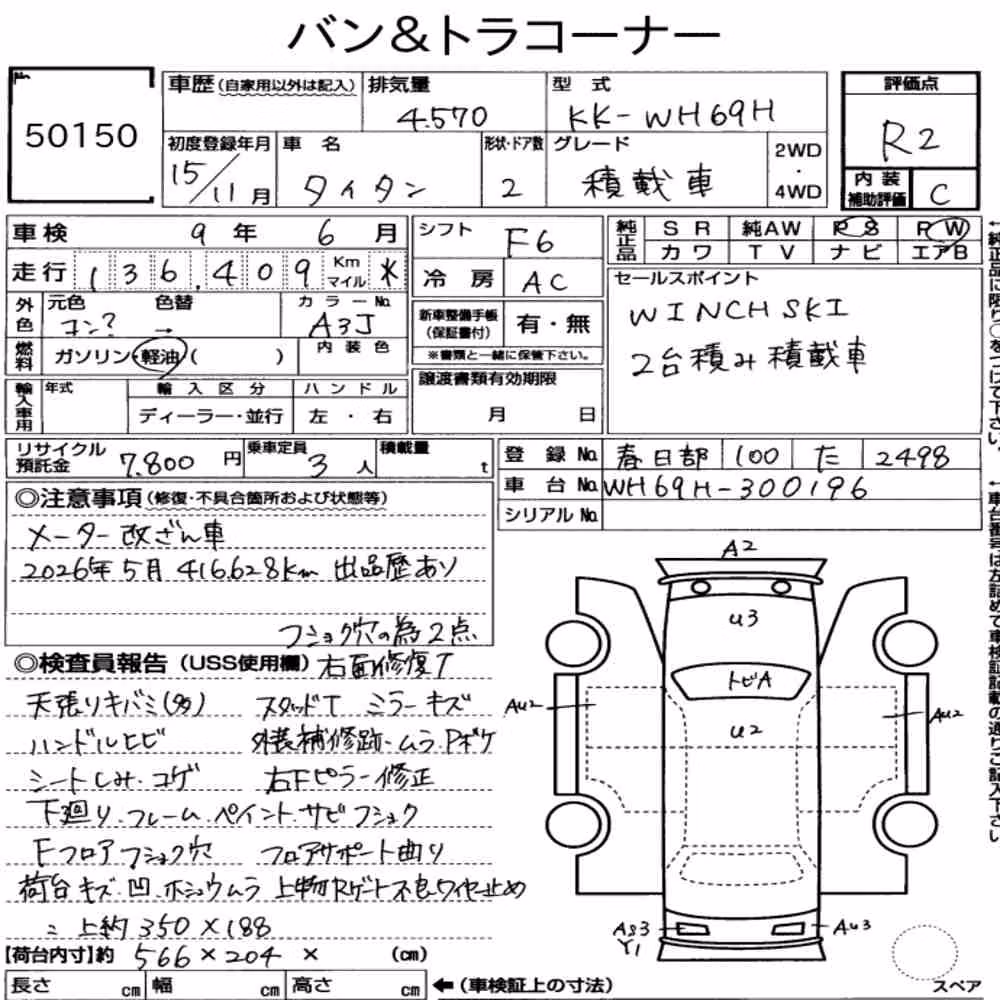 バン&トラコーナー
No.
50150
車歴(自家用以外は記入)
排気量
4.570
型式
KK-WH69H
評価点
R2
初度登録年月
15/11月
車名
タイタン
形状・ドア数
2
グレード
積載車
2WD・4WD
内装補助評価
C
車検 9年 6月
シフト
F6
純正品
SR 純AW PS PW
カワ TV ナビ エアB
走行 136,409 Km マイル *
冷房
AC
セールスポイント
WINCH SKI
2台積み積載車
外色
元色 色替 カラーNo.
コン? → A3J
新車整備手帳(保証書付)
有・無
※書類と一緒に保管下さい。
燃料
ガソリン・軽油( )
内装色
輸入車用
年式
輸入区分
ハンドル
ディーラー・並行
左・右
譲渡書類有効期限
月 日
リサイクル預託金
7.800円
乗車定員
3人
積載量
t
登録No.
春日部 100 た 2498
車台No.
WH69H-300196
シリアルNo.
◎注意事項(修復・不具合箇所および状態等)
メーター改ざん車
2026年5月 416.628km 出品歴あり
フショク穴の為2点
◎検査員報告(USS使用欄)
右面修復T
天張りキバミ(多) スタッドT ミラーキズ
ハンドルヒビ 外装補修跡・ムラ・Pボケ
シートしみ・コゲ 右Fピラー修正
下廻り.フレーム.ペイント.サビフショク
Fフロアフショク穴 フロアサポート曲り
荷台キズ.凹.ホシュウムラ 上物Rゲート不良ワイヤー止め
上約350×188
[荷台内寸]約 566×204 × (cm)
長さ cm 幅 cm 高さ cm
←(車検証上の寸法)
A2
U3
トビA
U2
AU2
AU2
AS3
Y1
AU3
スペア
←純正品に限り○をつけて下さい。
←車台番号は左詰めで車検証記載の通りご記入下さい